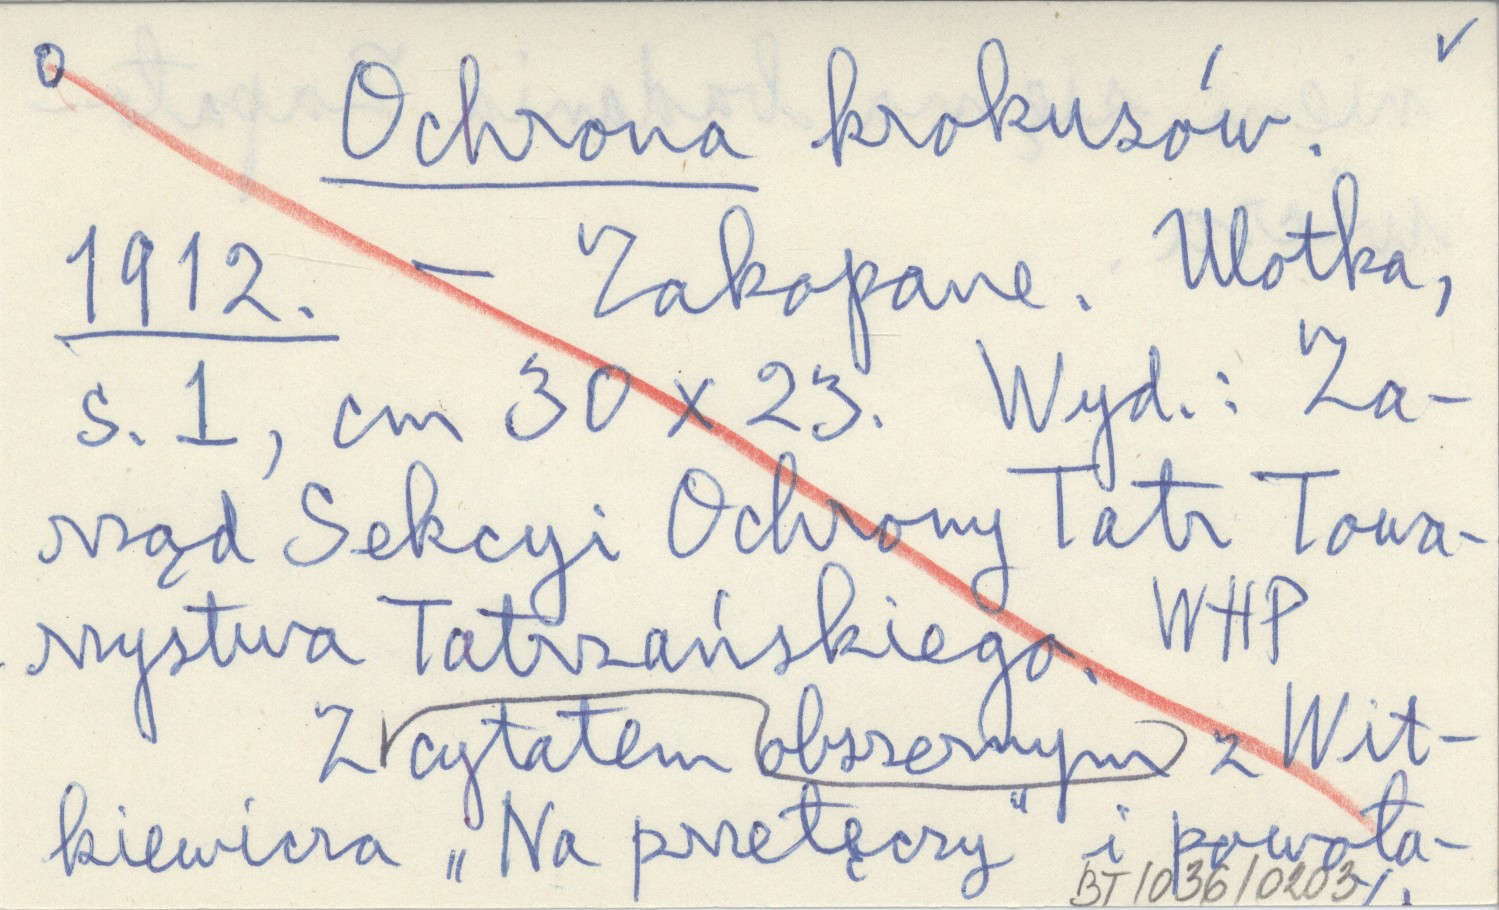 0 Ochrona krokusów. ✓
1912. – Zakopane. Ulotka,
s. 1, cm 30 x 23. Wyd.: Za-
rząd Sekcyi Ochrony Tatr Towa-
rzystwa Tatrzańskiego. WHP
Z cytatem obszernym z Wit-
kiewicza „Na przełęczy" i powoła-
BT/036/0203 /.